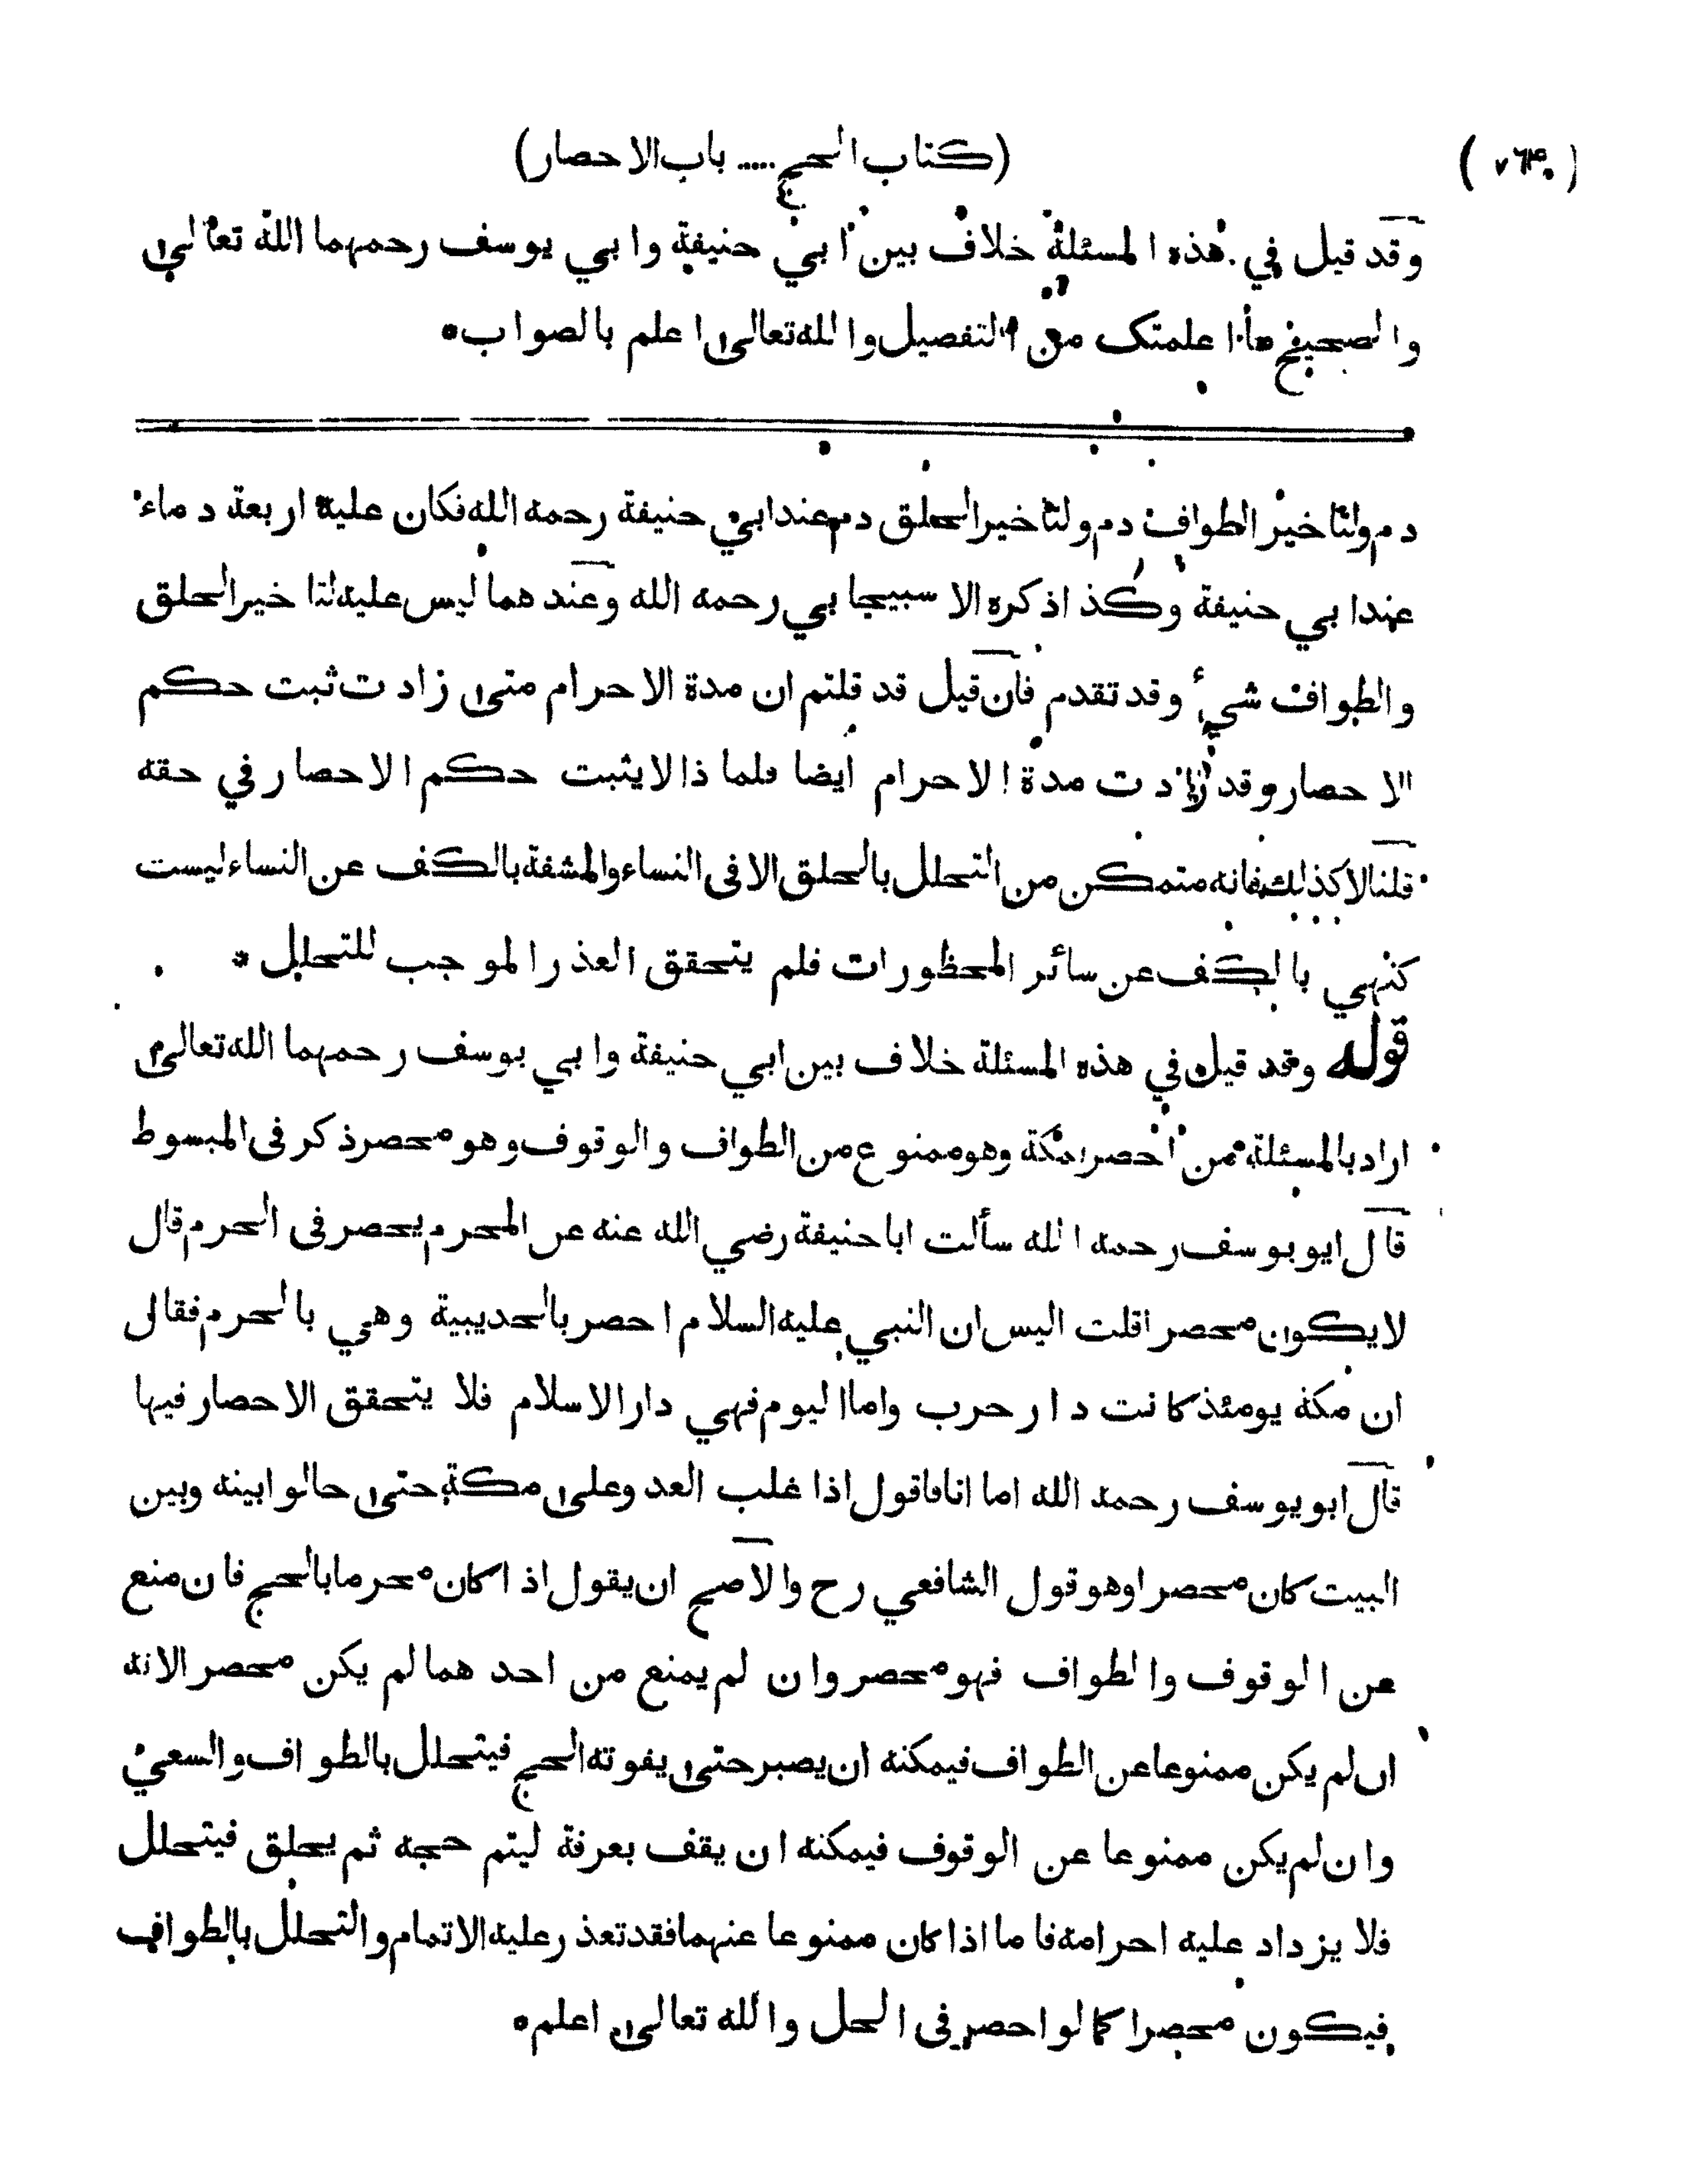 (كتاب الحج ..... باب الاحصار) (٧٦٣٠)
وقد قيل في هذه المسئلة خلاف بين ابي حنيفة وابي يوسف رحمهما الله تعالى
والصحيح ما اعلمتك من التفصيل والله تعالى اعلم بالصواب ٥
دم ولتاخير الطواف دم ولتاخير الحلق دم عند ابي حنيفة رحمه الله فكان عليه اربعة دماء
عند ابي حنيفة وكذا ذكره الاسبيجابي رحمه الله وعندهما ليس عليه لتاخير الحلق
والطواف شيء وقد تقدم فان قيل قد قلتم ان مدة الاحرام متى زادت ثبت حكم
الاحصار وقد زادت مدة الاحرام ايضا فلماذا لا يثبت حكم الاحصار في حقه
قلنا لا كذلك فانه متمكن من التحلل بالحلق الا فى النساء والمشقة بالكف عن النساء ليست
كنهي بالكف عن سائر المحظورات فلم يتحقق العذر الموجب للتحلل *
قوله وقد قيل في هذه المسئلة خلاف بين ابي حنيفة وابي يوسف رحمهما الله تعالى
اراد بالمسئلة ممن احصر بمكة وهو ممنوع من الطواف والوقوف وهو محصر ذكر فى المبسوط
قال ابو يوسف رحمه الله سألت ابا حنيفة رضي الله عنه عن المحرم يحصر فى الحرم قال
لا يكون محصرا قلت اليس ان النبي عليه السلام احصر بالحديبية وهي بالحرم فقال
ان مكة يومئذ كانت دار حرب واما اليوم فهي دار الاسلام فلا يتحقق الاحصار فيها
قال ابو يوسف رحمه الله اما انا فاقول اذا غلب العدو على مكة حتى حالوا بينه وبين
البيت كان محصرا وهو قول الشافعي رح والاصح ان يقول اذا كان محرما بالحج فان منع
عن الوقوف والطواف فهو محصر وان لم يمنع من احدهما لم يكن محصرا لانه
ان لم يكن ممنوعا عن الطواف فيمكنه ان يصبر حتى يفوته الحج فيتحلل بالطواف والسعي
وان لم يكن ممنوعا عن الوقوف فيمكنه ان يقف بعرفة ليتم حجه ثم يحلق فيتحلل
فلا يزداد عليه احرامه فاما اذا كان ممنوعا عنهما فقد تعذر عليه الاتمام والتحلل بالطواف
فيكون محصرا كما لو احصر فى الحل والله تعالى اعلم ٥